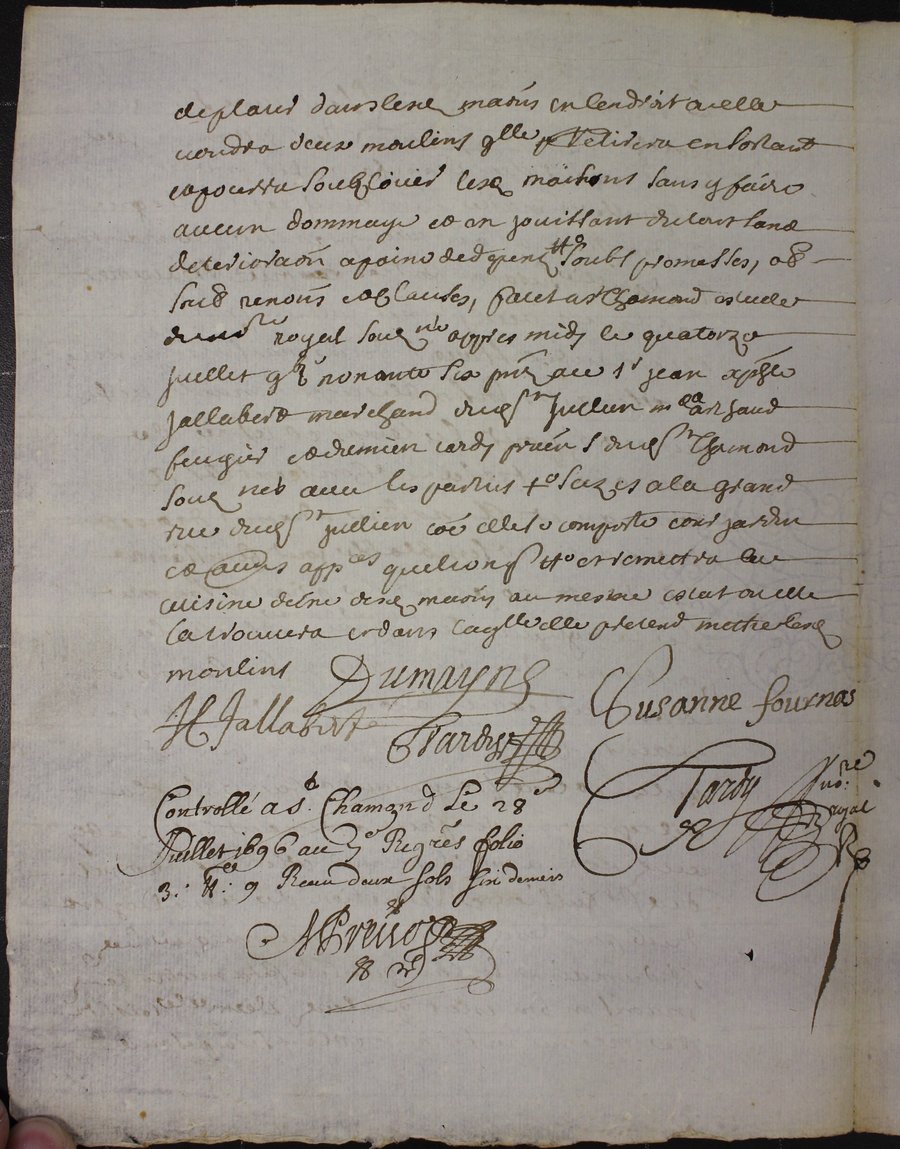 de placer dans lesd maisons en lendroit ou elle
voudra deux moulins qlle retirera en sortant
et pourra soubslouer lesd maisons sans y faire
aucun dommage et en jouissant du tout sans
deterioraon a peine de despens soubs promesses, ob
sub renons et clauses, faict a st Chamond estude
du nore royal soubne appres midy le quatorze
juillet nonante six pnt avec sr jean
Jallabert marchand dud st jullien me artaud
feugier et demien tardy praen dud st Chamond
soubnes avec les parties + sizes a la grand
rue dud st jullien coe elles se comporte cour jardin
et aunes appces et remettra la
cuisine de lune desd maisons au mesme estat ou elle
la trouvera et dans laqlle elle pretend mettre lesd
moulins Dumayne
Susanne fournas
H Jallabert
Tardy
Tardy nore royal
Controllé a st. Chamond Le 28e
Juillet 1696 au Regres folio
3. 9 Receu deux sols six deniers